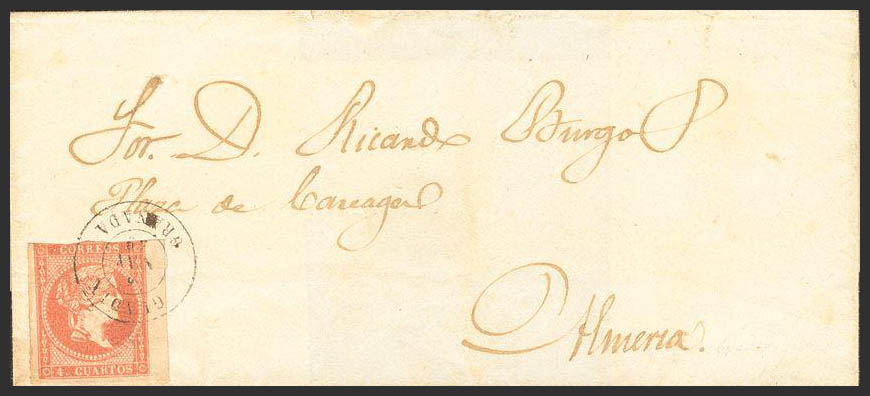 Sor. D. Ricardo Burgos
Plaza de Careaga
Almeria.
GRANADA
CORREOS
4 CUARTOS